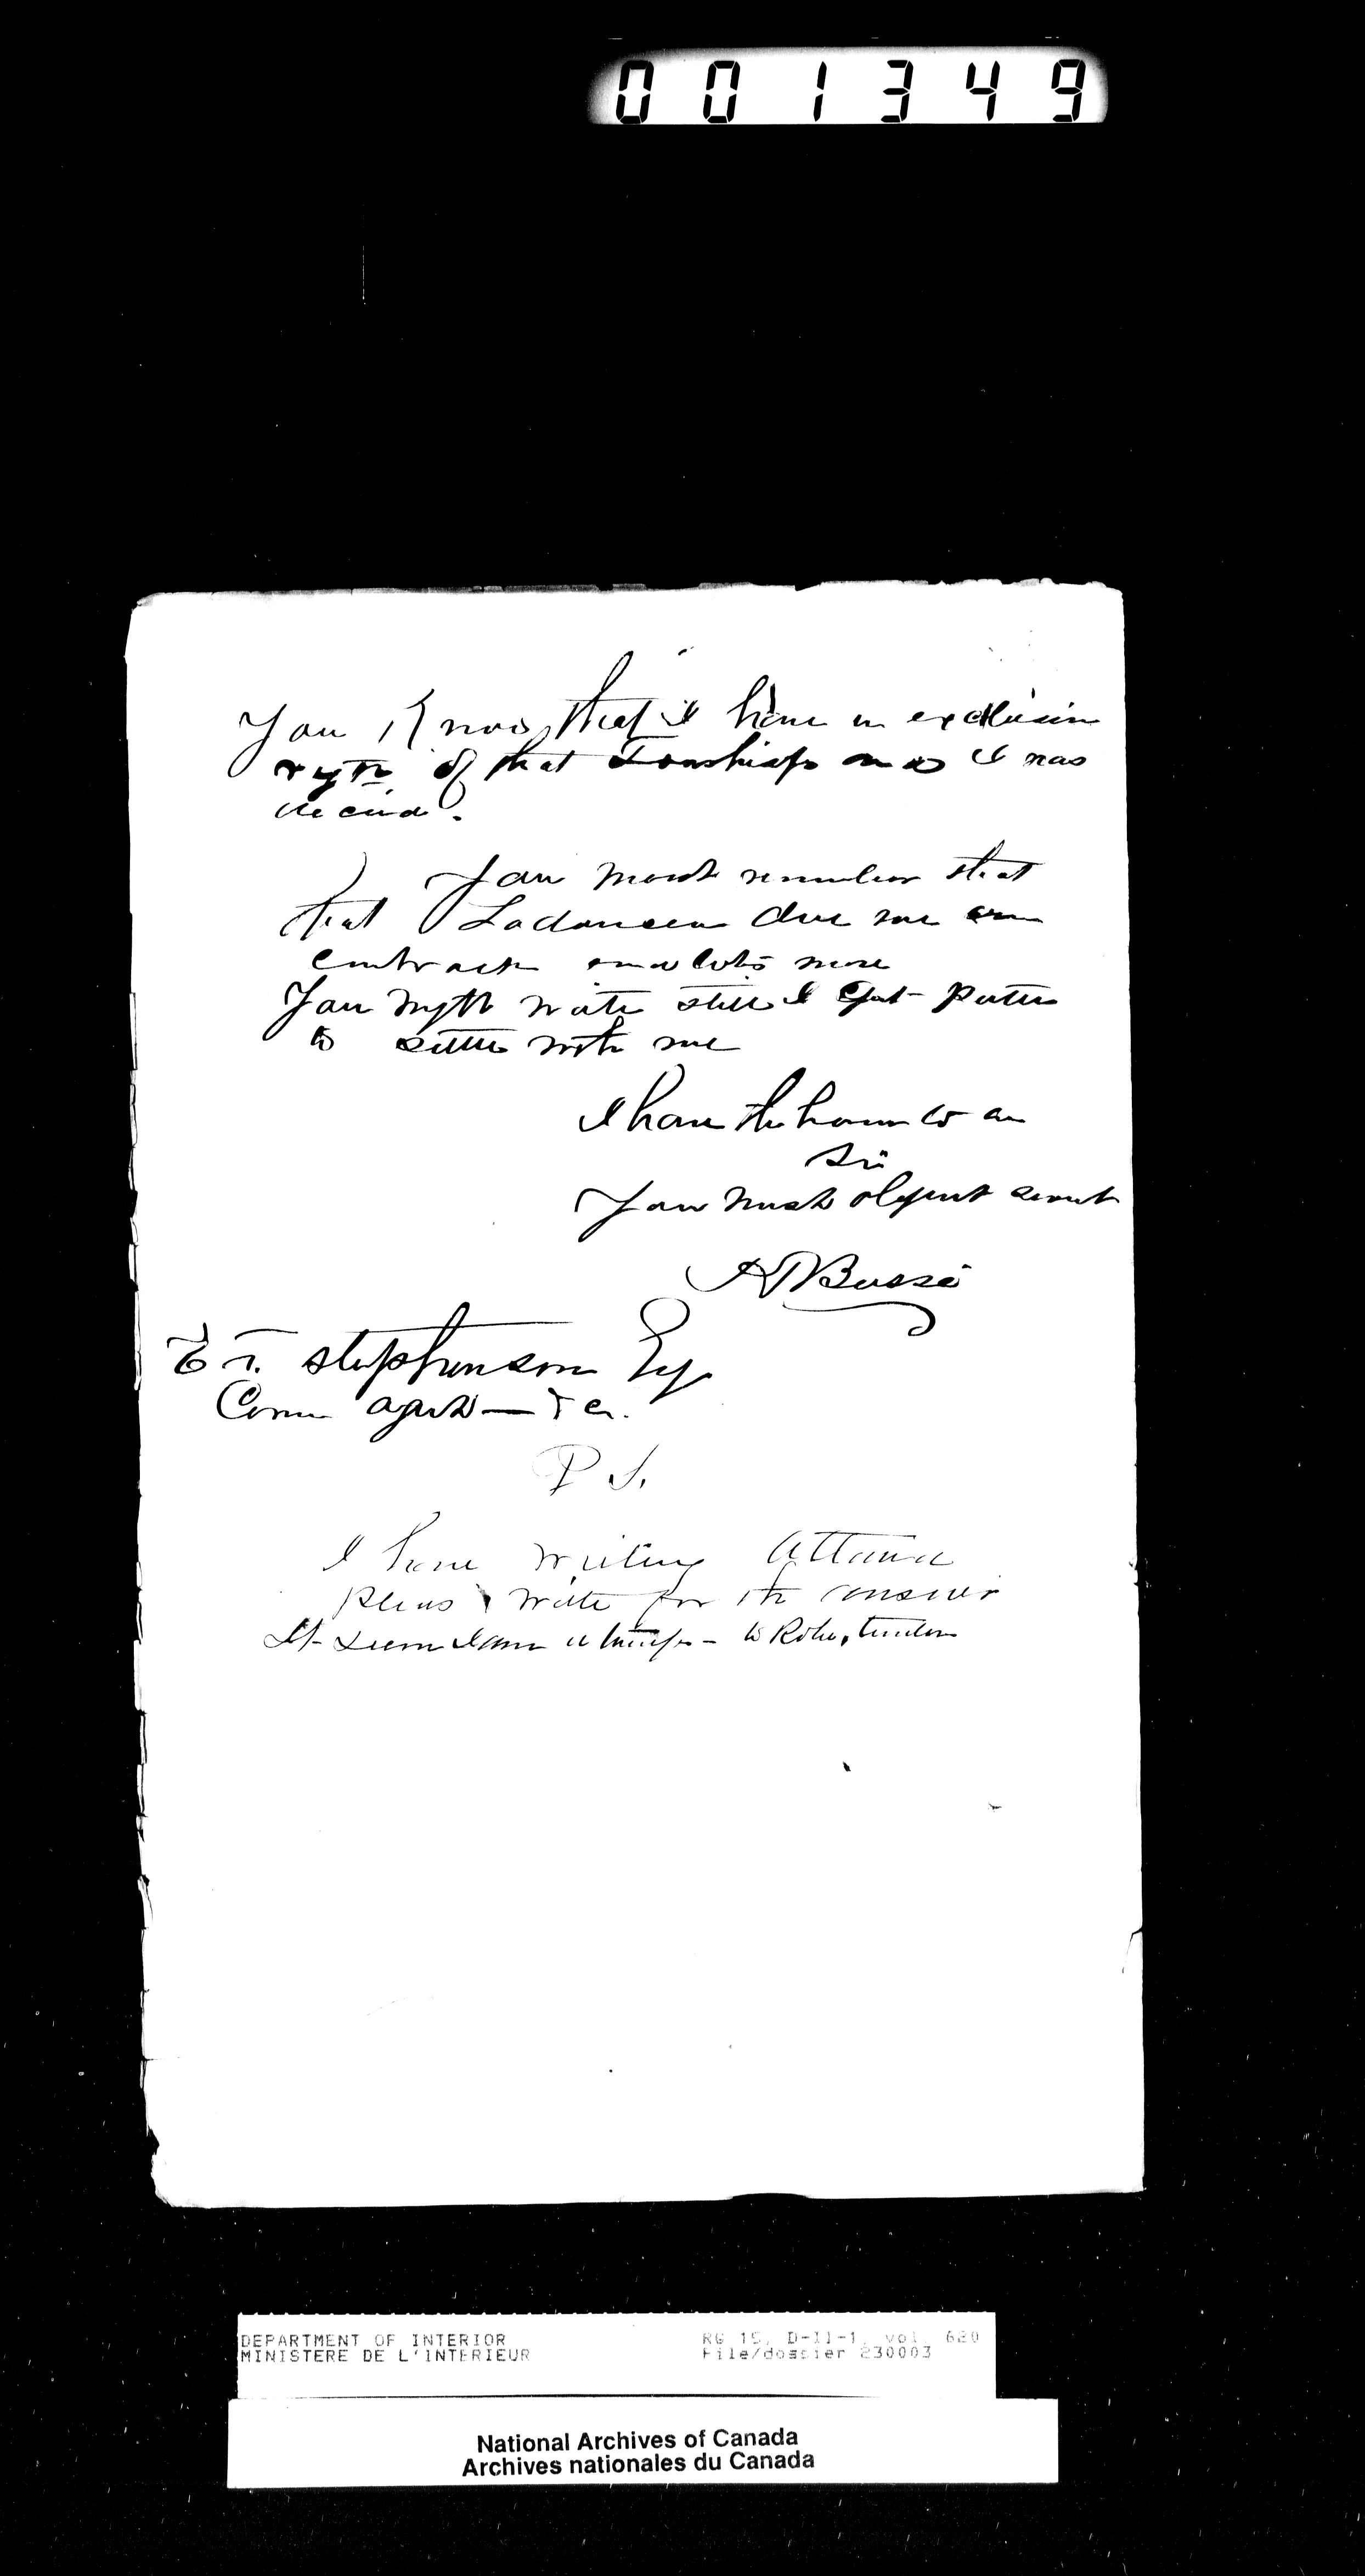 001349
You Know that I have un exclusive
ryth of that Township and I was
decided.
You must remember that
that Ladouceur due me
contract and lots more
You myth write still I Get
to settle with me
I have the honour to be
Sir
Your most obgient servent
A Bussé
E T. Stephenson Esq
Crown agent — &c.
P S.
I have writing Ottawa
pleas write for the answer
It seem
DEPARTMENT OF INTERIOR RG 15, D-II-1, vol. 620
MINISTERE DE L'INTERIEUR File/dossier 230003
National Archives of Canada
Archives nationales du Canada